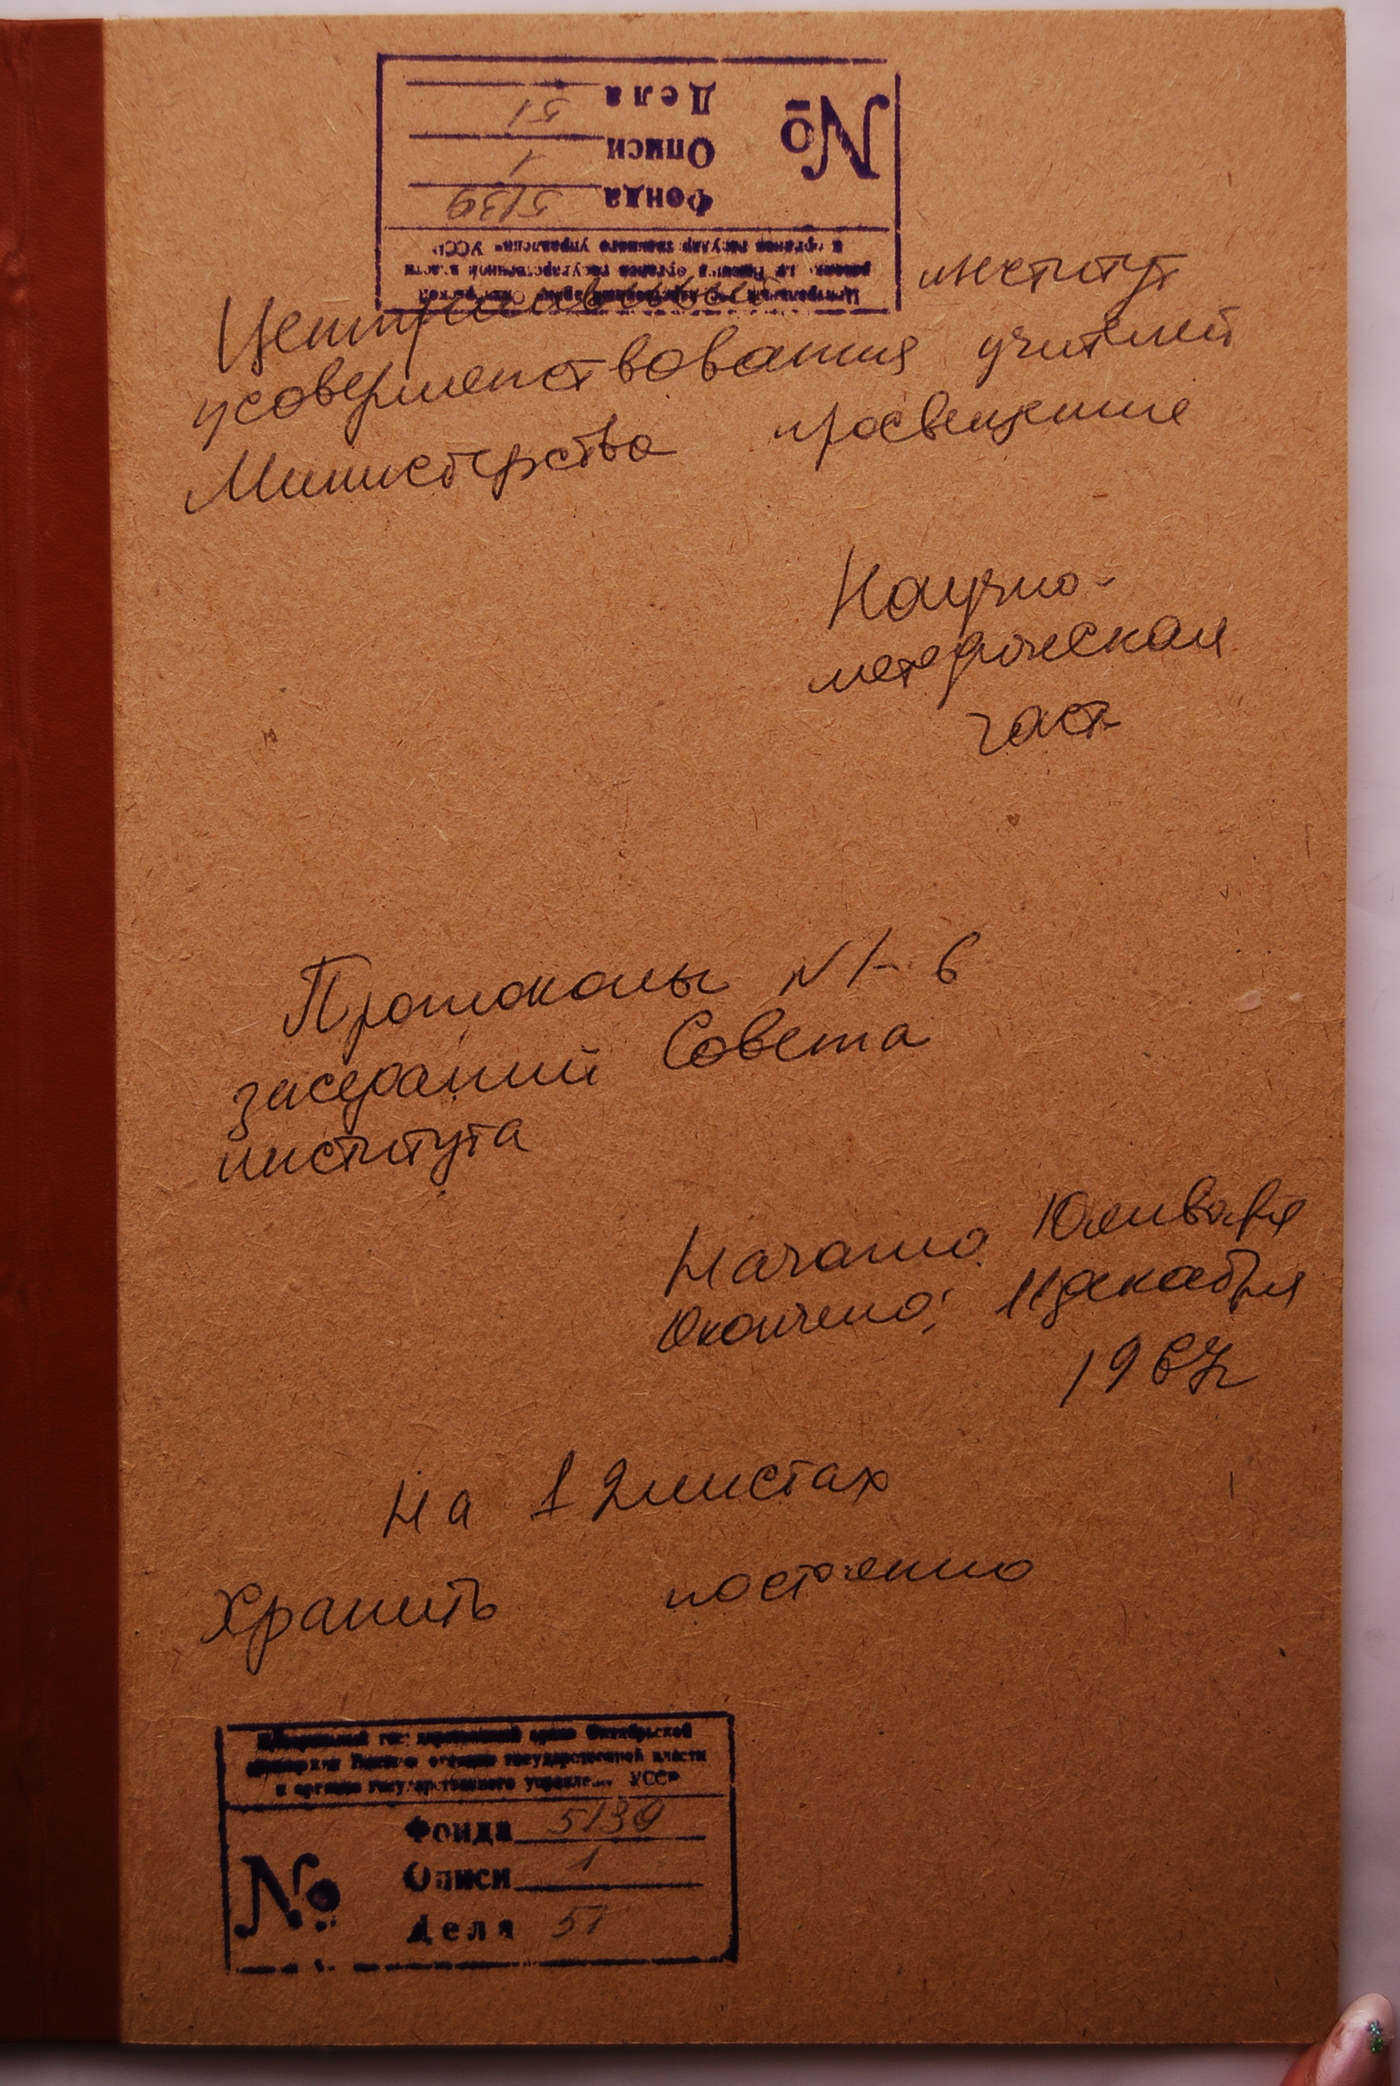 Центральный государственный архив Октябрьской
революции высших органов государственной власти
и органов государственного управления УССР
№
Фонда 5139
Описи 1
Дела 51
институт
усовершенствования учителей
Министерства просвещения
Научно-
методическая
часть
Протоколы N 1-6
заседаний Совета
института
Начато 10 января
Окончено: 11 декабря
1967
На 12 листах
Хранить постоянно
Центральный государственный архив Октябрьской
революции высших органов государственной власти
и органов государственного управления УССР
№
Фонда 5139
Описи 1
Дела 51